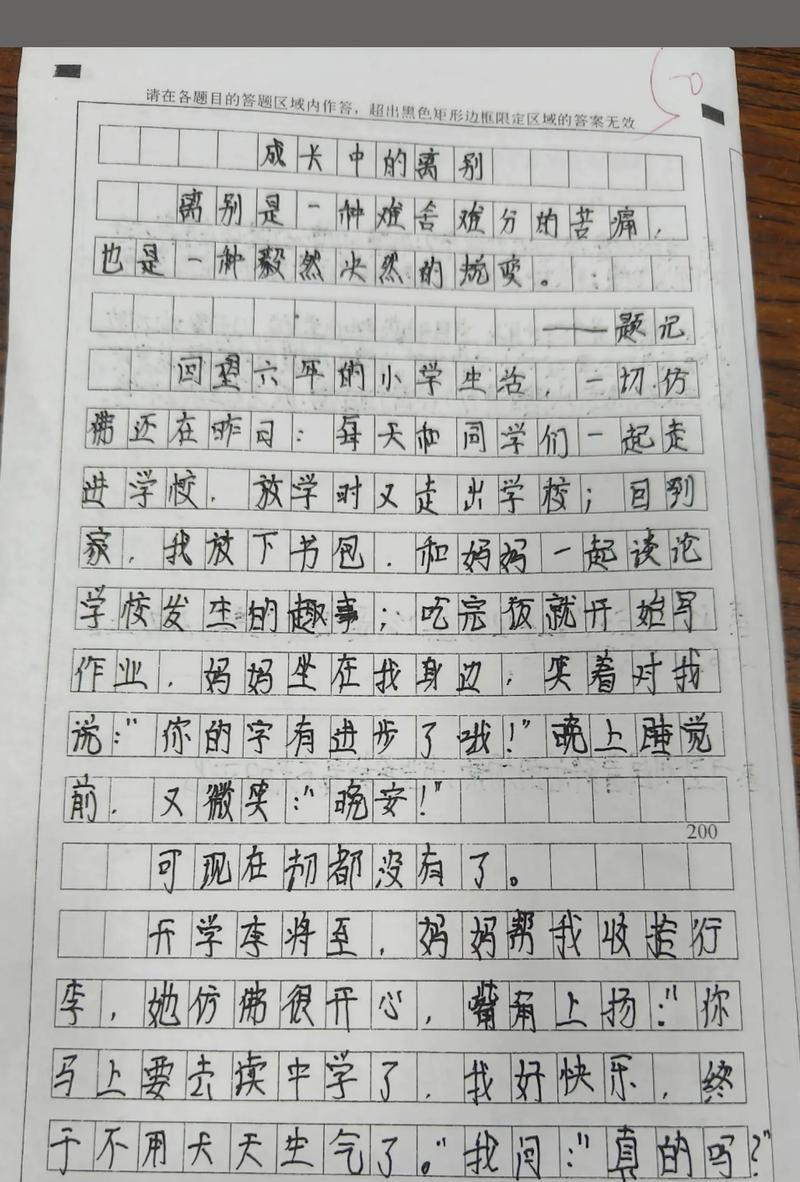 50
请在各题目的答题区域内作答，超出黑色矩形边框限定区域的答案无效
成长中的离别
离别是一种难舍难分的苦痛，
也是一种毅然决然的蜕变。
——题记
回望六年的小学生活，一切仿
佛还在昨日：每天和同学们一起走
进学校，放学时又走出学校；回到
家，我放下书包，和妈妈一起谈论
学校发生的趣事；吃完饭就开始写
作业，妈妈坐在我身边，笑着对我
说："你的字有进步了哦！"晚上睡觉
前，又微笑："晚安！"
200
可现在都没有了。
开学季将至，妈妈帮我收拾行
李，她仿佛很开心，嘴角上扬："你
马上要去读中学了，我好快乐，终
于不用天天生气了。"我问："真的吗？"